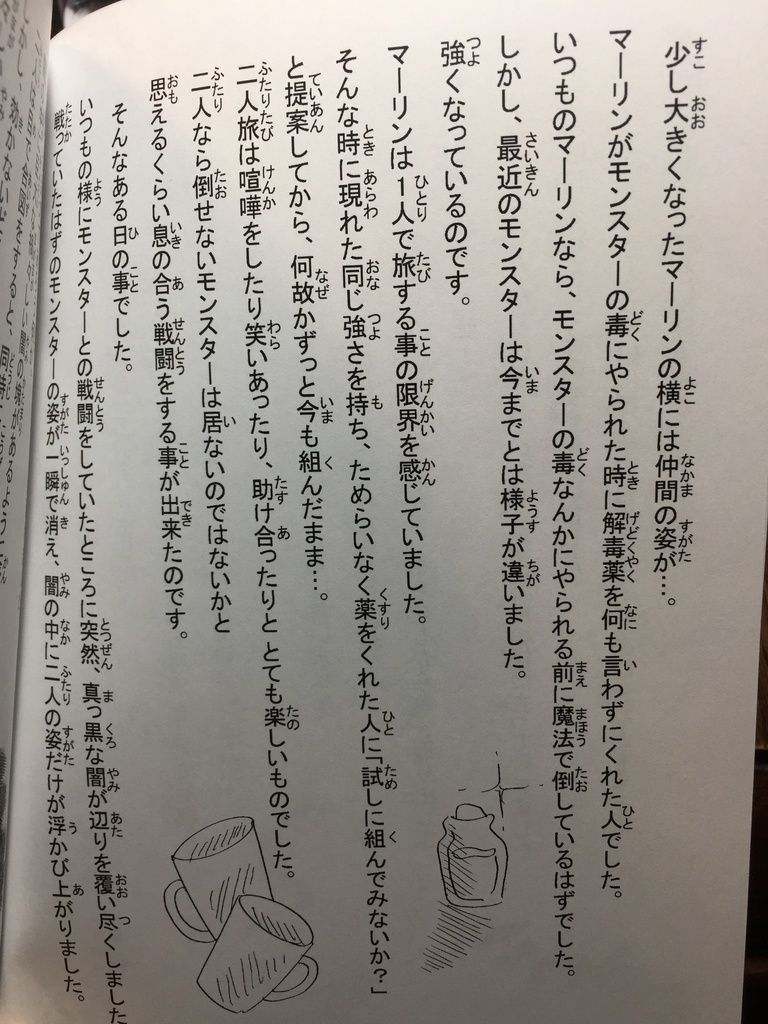 少し大きくなったマーリンの横には仲間の姿が…。
マーリンがモンスターの毒にやられた時に解毒薬を何も言わずにくれた人でした。
いつものマーリンなら、モンスターの毒なんかにやられる前に魔法で倒しているはずでした。
しかし、最近のモンスターは今までとは様子が違いました。
強くなっているのです。
マーリンは1人で旅する事の限界を感じていました。
そんな時に現れた同じ強さを持ち、ためらいなく薬をくれた人に「試しに組んでみないか？」
と提案してから、何故かずっと今も組んだまま…。
二人旅は喧嘩をしたり笑いあったり、助け合ったりと とても楽しいものでした。
二人なら倒せないモンスターは居ないのではないかと
思えるくらい息の合う戦闘をする事が出来たのです。
そんなある日の事でした。
いつもの様にモンスターとの戦闘をしていたところに突然、真っ黒な闇が辺りを覆い尽くしました
戦っていたはずのモンスターの姿が一瞬で消え、闇の中に二人の姿だけが浮かび上がりました。